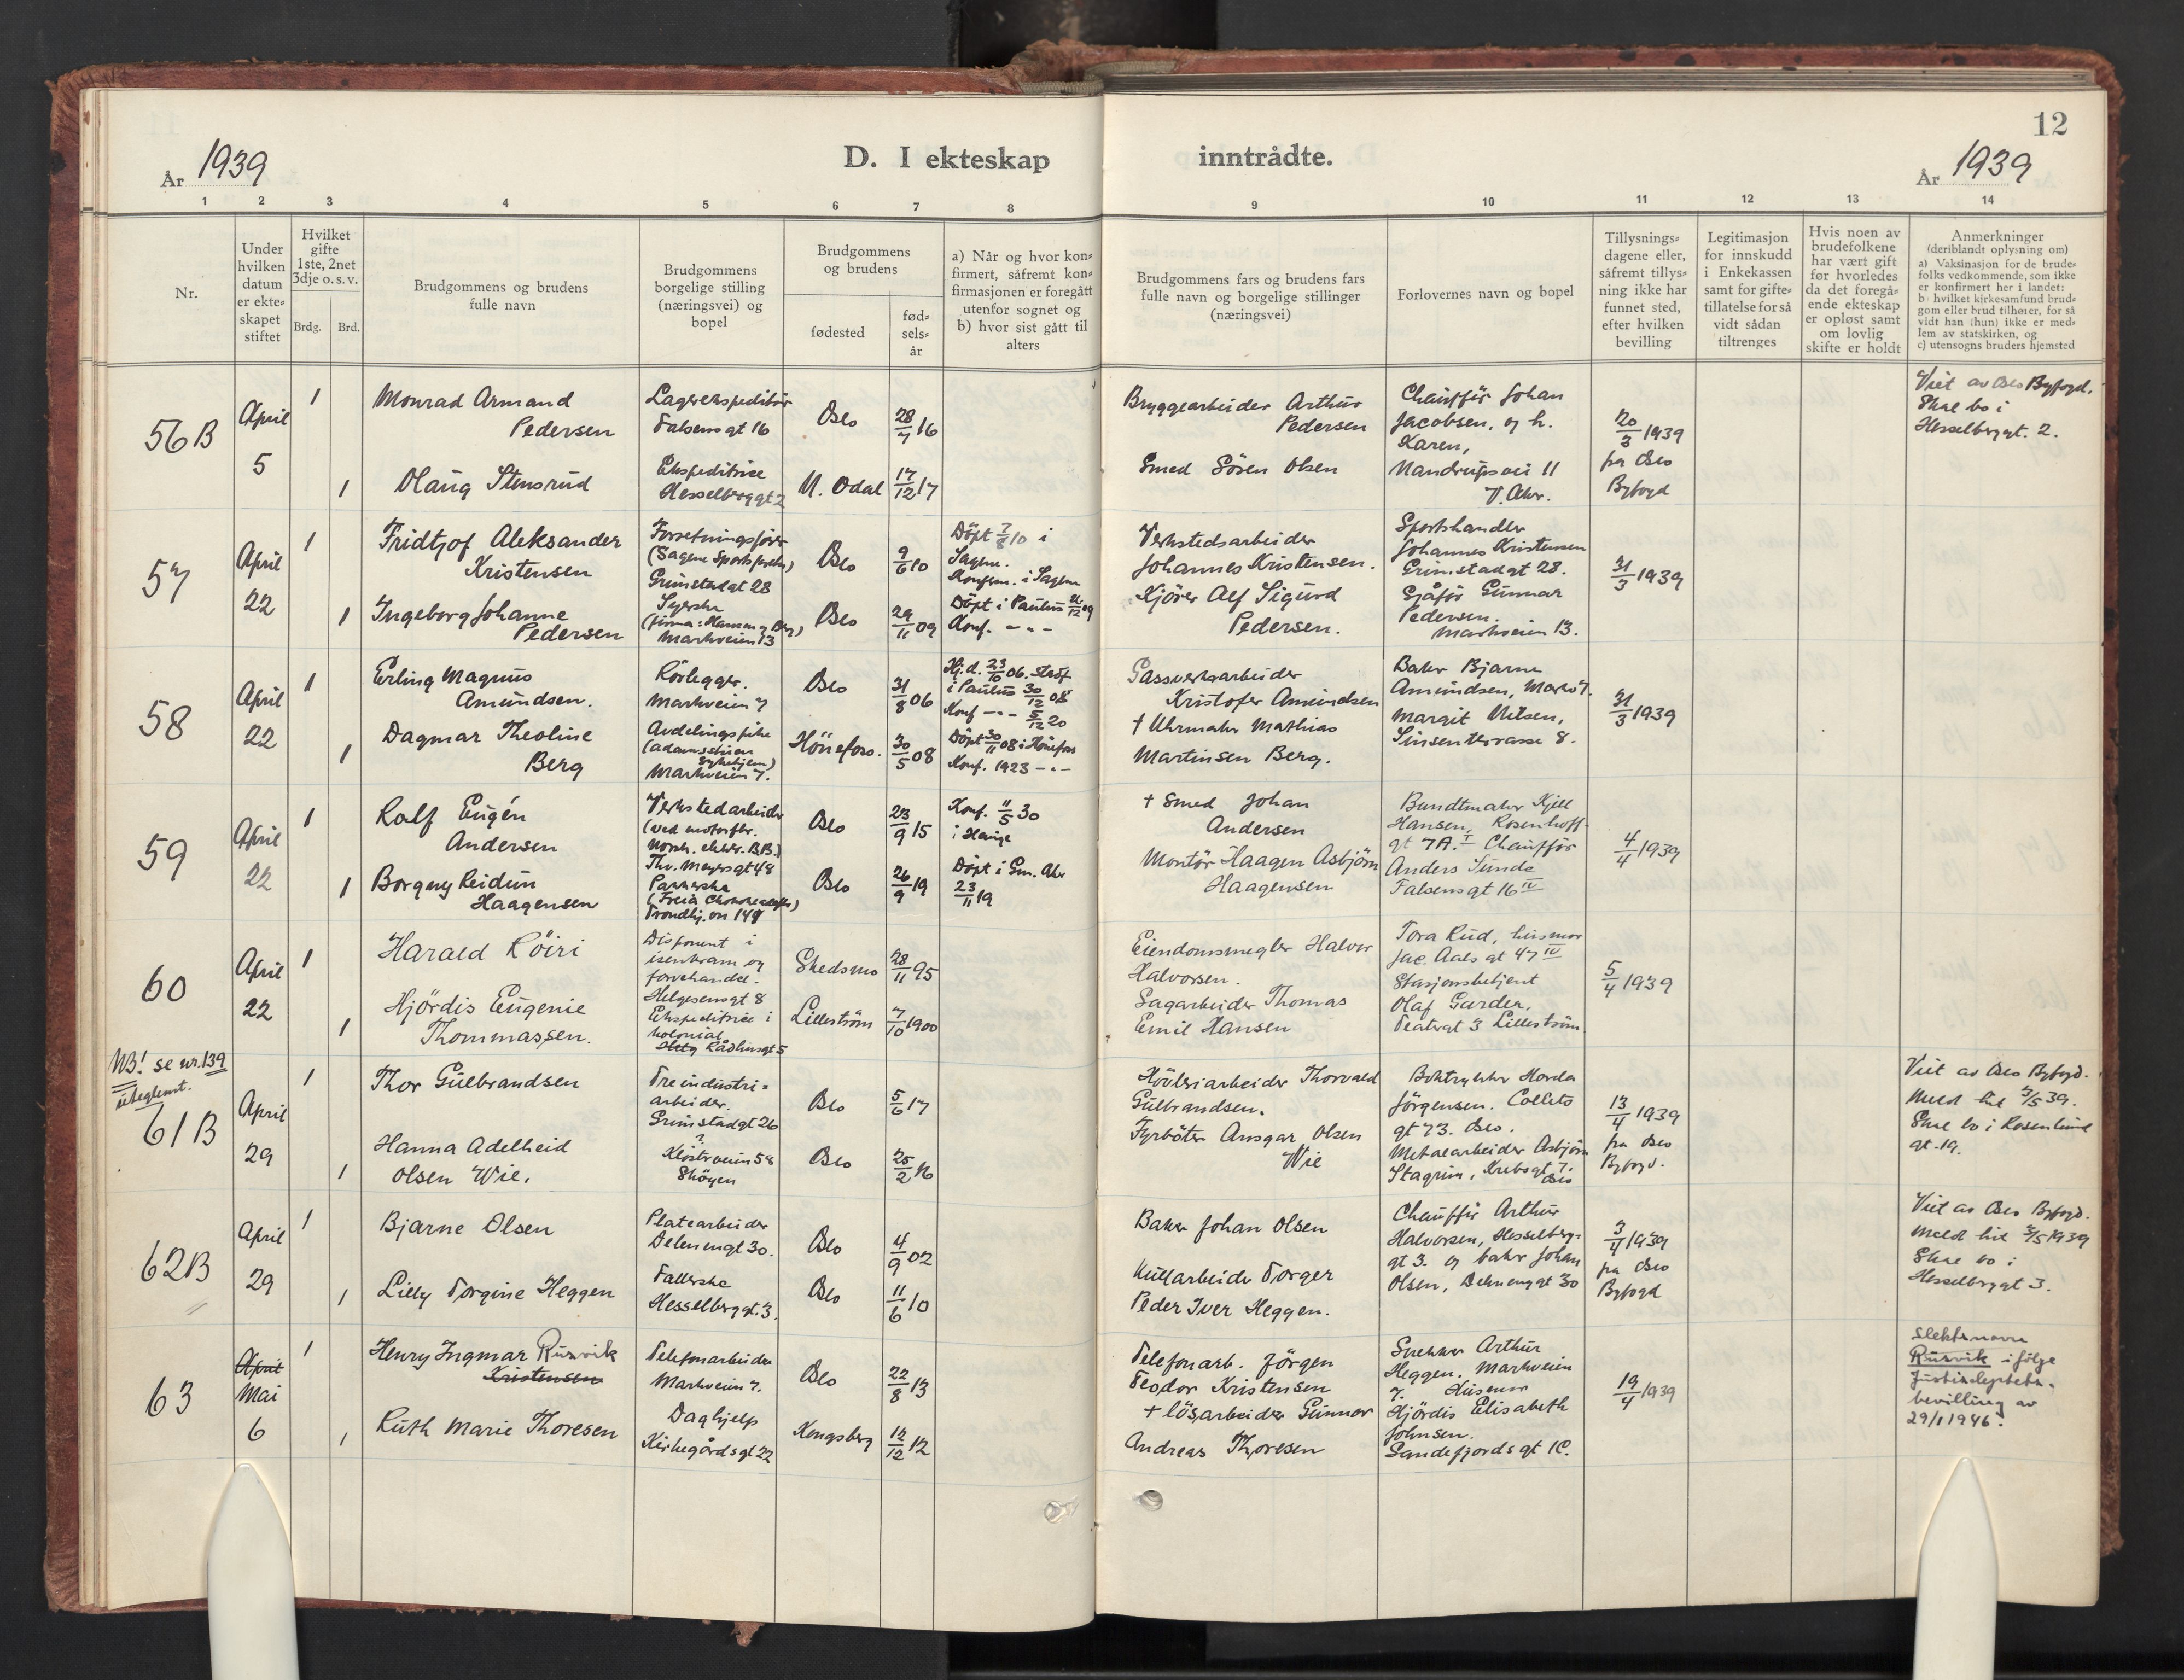 12
År 1939
D. I ekteskap inntrådte.
År 1939
1 2 3 4 5 6 7 8 9 10 11 12 13 14
Nr.
Under hvilken datum er ekteskapet stiftet
Hvilket gifte 1ste, 2net 3dje o. s. v.
Brdg. Brd.
Brudgommens og brudens fulle navn
Brudgommens borgelige stilling (næringsvei) og bopel
Brudgommens og brudens
fødested
fødselsår
a) Når og hvor konfirmert, såfremt konfirmasjonen er foregått utenfor sognet og b) hvor sist gått til alters
Brudgommens fars og brudens fars fulle navn og borgelige stillinger (næringsvei)
Forlovernes navn og bopel
Tillysningsdagene eller, såfremt tillysning ikke har funnet sted, efter hvilken bevilling
Legitimasjon for innskudd i Enkekassen samt for giftetillatelse for så vidt sådan tiltrenges
Hvis noen av brudefolkene har vært gift før hvorledes da det foregående ekteskap er opløst samt om lovlig skifte er holdt
Anmerkninger (deriblandt oplysning om) a) Vaksinasjon for de brudefolks vedkommende, som ikke er konfirmert her i landet: b) hvilket kirkesamfund brudgom eller brud tilhører, for så vidt han (hun) ikke er medlem av statskirken, og c) utensogns bruders hjemsted
56B
April
5
1
Monrad Armand
Pedersen
Lagerekspeditör
Falsensgt 16
Oslo
28/7 16
1
Olaug Stensrud
Ekspeditrice
Hesselberggt 2
N. Odal
17/12 17
Bryggearbeider Arthur
Pedersen
Smed Sören Olsen
Chaufför Johan
Jacobsen, og h.
Karen,
Nandrupsvei 11
V. Aker.
20/3 1939
fra Oslo
Byfogd
Viet av Oslo Byfogd.
Skal bo i
Hesselberggt. 2.
57
April
22
1
Fridtjof Aleksander
Kristensen
Forretningsfører
Grimstadgt 28
Oslo
9/6 10
Döpt 7/8 10 i
Sagene.
Konfirm. i Sagene
1
Ingeborg Johanne
Pedersen
Syerske
(firma: Hansen og Berg)
Markveien 13
Oslo
29/11 09
Döpt i Paulus 26/12 09
Konf. - " -
Verkstedsarbeider
Johannes Kristensen.
Kjörer Alf Sigurd
Pedersen.
Sportshandler
Johannes Kristensen
Grimstadgt 28.
Sjåför Gunnar
Pedersen.
Markveien 13.
31/3 1939
58
April
22
1
Erling Magnus
Amundsen.
Rörlegger.
Markveien 7
Oslo
31/8 06
Hj.d. 23/10 06. Stadf
i Paulus 30/12 08
Konf - " - 5/12 20
1
Dagmar Theoline
Berg
Avdelingspike
(Adamstuen
Sykehjem)
Markveien 7.
Hönefoss.
30/5 08
Döpt 30/11 08 i Hönefoss
Konf. 1923 - " -
Gassverksarbeider
Kristofer Amundsen
+ Uhrmaker Mathias
Martinsen Berg.
Baker Bjarne
Amundsen, Markv 7.
Margit Nilsen,
Sinsenterrasse 8.
31/3 1939
59
April
22
1
Rolf Eugén
Andersen
Verkstedarbeider
(ved motorfbr.
Norsk. elektr. B.B.)
Thv. Meyersgt 48
Oslo
23/9 15
Konf. 11/5 30
i Hauge
1
Borgny Reidun
Haagensen
Pakkerske
(Freia Chokoladefbr)
Trondhj.vn 149
Oslo
26/9 19
Döpt i Gm. Aker
23/11 19
+ Smed Johan
Andersen
Montör Haagen Asbjörn
Haagensen
Bundtmaker Kjell
Hansen, Rosenhoff-
gt 7A. I Chaufför
Anders Sunde
Falsensgt 16 IV
4/4 1939
60
April
22
1
Harald Röiri
Disponent i
isenkram og
farvehandel.
Helgesensgt 8
Skedsmo
28/11 95
1
Hjördis Eugenie
Thommassen.
Ekspeditrice i
kolonial
Rådhusgt 5
Lilleström
7/10 1900
Eiendomsmegler Halvor
Halvorsen.
Sagarbeider Thomas
Emil Hansen
Tora Rud, husmor
Jac. Aalsgt 47 IV
Stasjonsbetjent
Olaf Garder,
Teatergt 3 Lilleström
5/4 1939
NB! se nr. 139
uteglemt.
61B
April
29
1
Thor Gulbrandsen
Treindustri-
arbeider.
Grimstadgt 26
Oslo
5/6 17
1
Hanna Adelheid
Olsen Wie.
?
Klosterveien 58
Sköyen
Oslo
25/2 16
Hövleriarbeider Thorvald
Gulbrandsen.
Fyrböter Ansgar Olsen
Wie
Boktrykker Horda
Jörgensen. Colletts
gt 73. Oslo.
Metalarbeider Asbjörn
Stagrim, Krebsgt 7.
Oslo
13/4 1939
fra Oslo
Byfogd.
Viet av Oslo Byfogd.
Meldt hit 3/5 39.
Skal bo i Rosenlund
gt. 19.
62B
April
29
1
Bjarne Olsen
Platearbeider
Delenenggt 30.
Oslo
4/9 02
1
Lilly Torgine Heggen
Fallerske
Hesselberggt. 3.
Oslo
11/6 10
Baker Johan Olsen
Kullarbeider Torger
Peder Iver Heggen.
Chauffør Arthur
Halvorsen, Hesselberg-
gt 3. og baker Johan
Olsen, Delenenggt 30
3/4 1939
fra Oslo
Byfogd
Viet av Oslo Byfogd.
Meldt hit 3/5 1939
Skal bo i
Hesselberggt 3.
63
April
Mai
6
1
Henry Ingmar Rusvik
Kristensen
Telefonarbeider
Markveien 7.
Oslo
22/8 13
1
Ruth Marie Thoresen
Daghjelp
Kirkegårdsgt 22
Kongsberg
12/12 12
Telefonarb. Jörgen
Teodor Kristensen
+ lösarbeider Gunnar
Andreas Thoresen
Snekker Arthur
Heggen, Markveien
7. Husmor
Hjördis Elisabeth
Johnsen.
Sandefjordsgt 1C.
19/4 1939
Slektsnavn
Rusvik i følge
Justisdeptets.
bevilling av
29/1 1946.